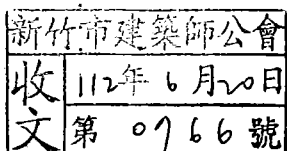 新竹市建築師公會
收文
112年6月20日
第 0766 號